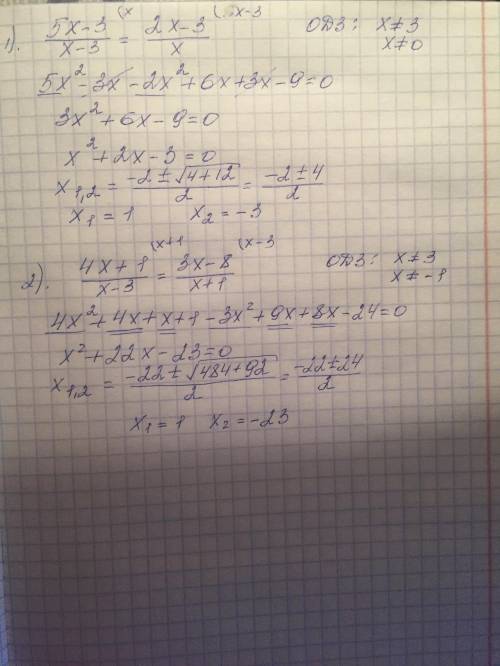 1). (5x-3)/(x-3) (x = (2x-3)/x (x-3 ОДЗ: x≠3
x≠0
5x²-3x-2x²+6x+3x-9=0
3x²+6x-9=0
x²+2x-3=0
x₁,₂ = (-2±√(4+12))/2 = (-2±4)/2
x₁=1 x₂=-3
2). (4x+1)/(x-3) (x+1 = (3x-8)/(x+1) (x-3 ОДЗ: x≠3
x≠-1
4x²+4x+x+1-3x²+9x+8x-24=0
x²+22x-23=0
x₁,₂ = (-22±√(484+92))/2 = (-22±24)/2
x₁=1 x₂=-23